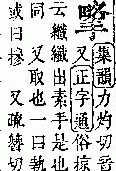 集韻力灼切音
又正字通俗掠
云纖纖出素手是也
同 又取也一曰執
或曰摻 又疏簪切